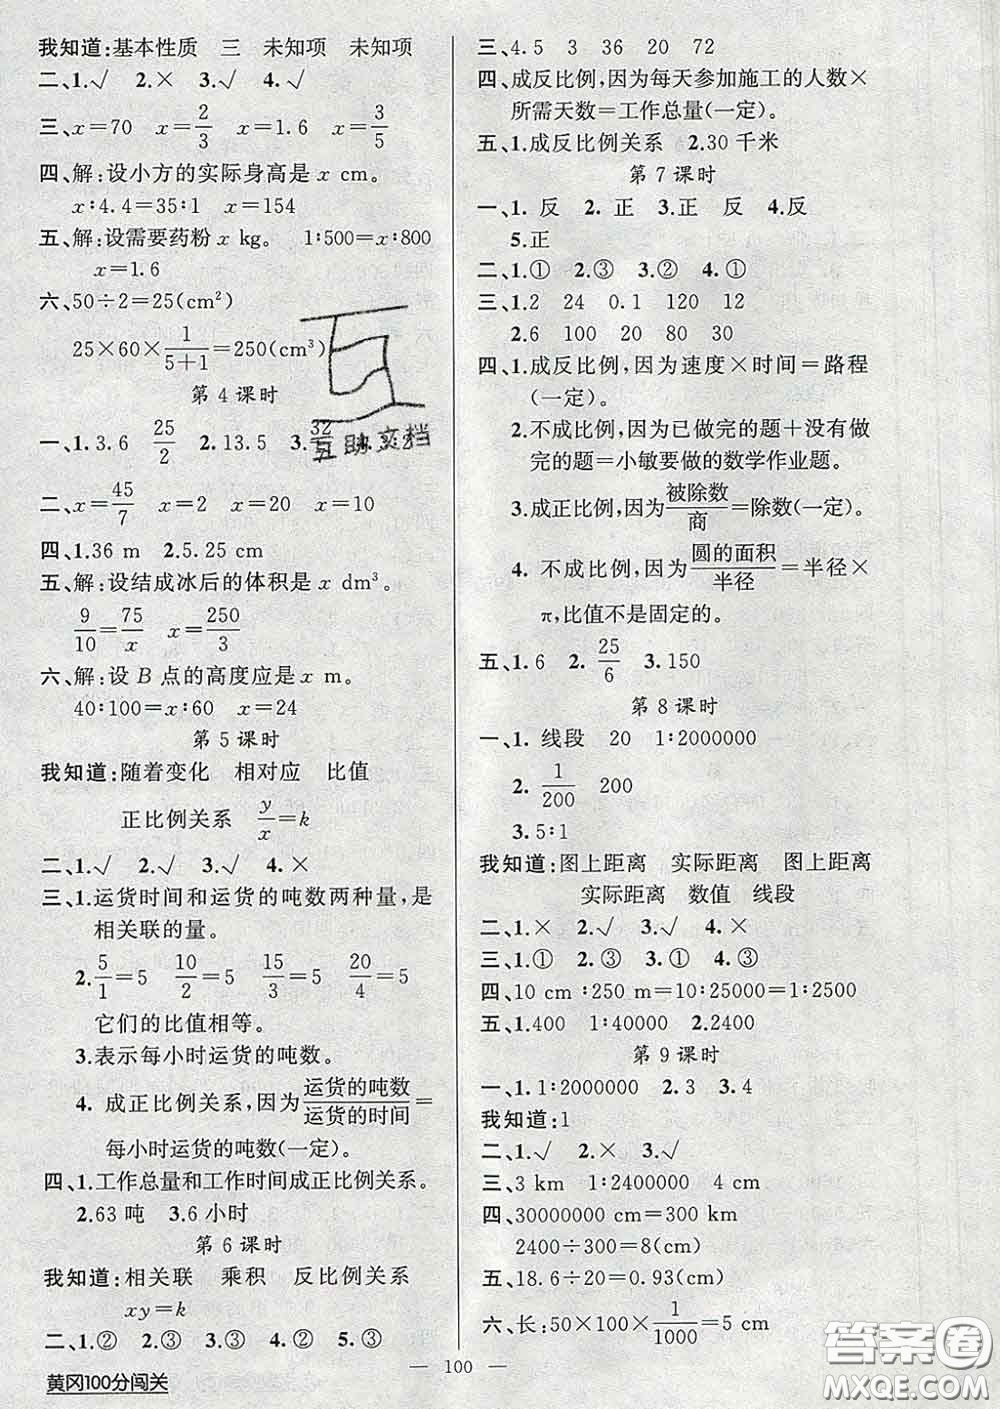 我知道:基本性质　三　未知项　未知项
二、1.√　2.×　3.√　4.√
三、x=70　x=2/3　x=1.6　x=3/5
四、解:设小方的实际身高是 x cm。
x∶4.4=35∶1　x=154
五、解:设需要药粉 x kg。　1∶500=x∶800
x=1.6
六、50÷2=25(cm²)
25×60×1/(5+1)=250(cm³)
第 4 课时
一、1.3.6　25/2　2.13.5　3.
互助文档
二、x=45/7　x=2　x=20　x=10
四、1.36 m　2.5.25 cm
五、解:设结成冰后的体积是 x dm³。
9/10=75/x　x=250/3
六、解:设 B 点的高度应是 x m。
40∶100=x∶60　x=24
第 5 课时
我知道:随着变化　相对应　比值
正比例关系　y/x=k
二、1.√　2.√　3.√　4.×
三、1.运货时间和运货的吨数两种量,是
相关联的量。
2.5/1=5　10/2=5　15/3=5　20/4=5
它们的比值相等。
3.表示每小时运货的吨数。
4. 成正比例关系,因为运货的吨数/运货的时间=
每小时运货的吨数(一定)。
四、1.工作总量和工作时间成正比例关系。
2.63 吨　3.6 小时
第 6 课时
我知道:相关联　乘积　反比例关系
xy=k
二、1.②　2.③　3.③　4.②　5.③
三、4.5　3　36　20　72
四、成反比例,因为每天参加施工的人数×
所需天数=工作总量(一定)。
五、1.成反比例关系　2.30 千米
第 7 课时
一、1. 反　2. 正　3.正　反　4.反
5.正
二、1.①　2.③　3.②　4.①
三、1.2　24　0.1　120　12
2.6　100　20　80　30
四、1.成反比例,因为速度×时间=路程
(一定)。
2.不成比例,因为已做完的题+没有做
完的题=小敏要做的数学作业题。
3.成正比例,因为被除数/商=除数(一定)。
4. 不成比例,因为圆的面积/半径=半径×
π,比值不是固定的。
五、1.6　2.25/6　3.150
第 8 课时
一、1. 线段　20　1∶2000000
2.1/200　200
3.5∶1
我知道:图上距离　实际距离　图上距离
实际距离　数值　线段
二、1.×　2.√　3.√　4.×
三、1.①　2.③　3.①　4.③
四、10 cm∶250 m=10∶25000=1∶2500
五、1.400　1∶40000　2.2400
第 9 课时
一、1.1∶2000000　2.3　3.4
我知道:1
二、1.√　2.√　3.√
三、3 km　1∶2400000　4 cm
四、30000000 cm=300 km
2400÷300=8(cm)
五、18.6÷20=0.93(cm)
六、长:50×100×1/1000=5 cm
100
黄冈100分闯关
答案圈
MXQE.COM